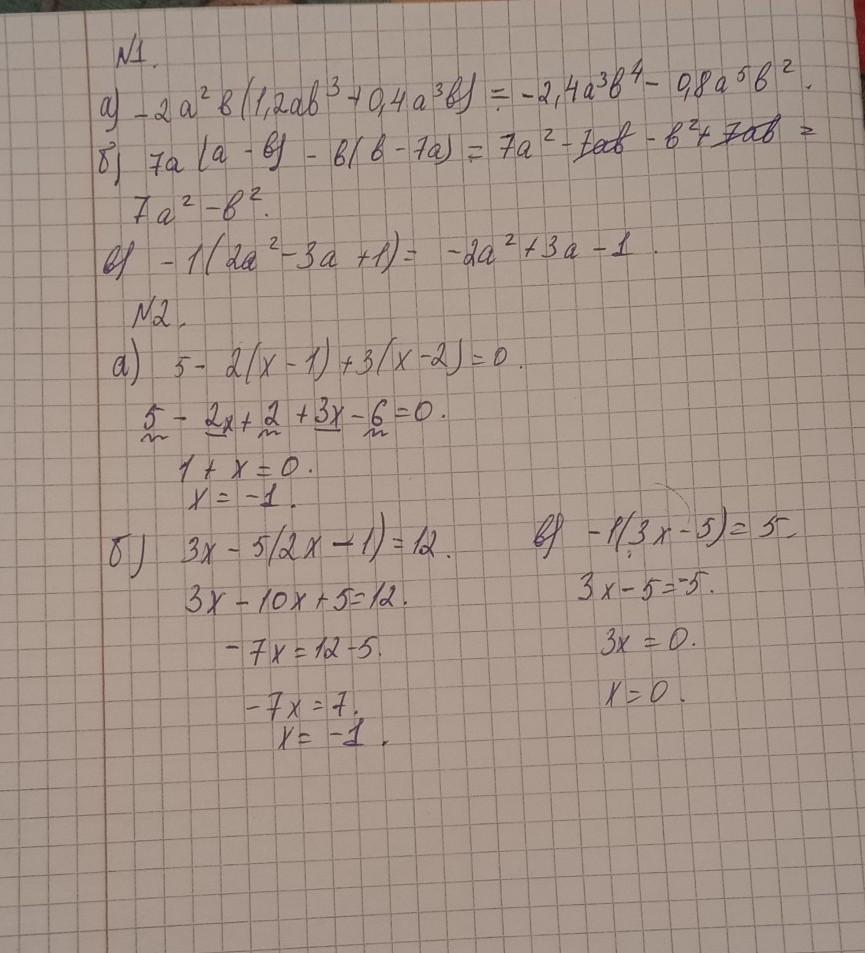 №1.
а) -2a²b(1,2ab³+0,4a³b) = -2,4a³b⁴ - 0,8a⁵b².
б) 7a(a-b) - b(b-7a) = 7a² - 7ab - b² + 7ab =
7a² - b².
в) -1(2a²-3a+1) = -2a²+3a-1.
№2.
а) 5-2(x-1)+3(x-2)=0.
5-2x+2+3x-6=0.
1+x=0.
x=-1.
б) 3x-5(2x-1)=12.
3x-10x+5=12.
-7x=12-5.
-7x=7.
x=-1.
в) -1(3x-5)=5.
3x-5=-5.
3x=0.
x=0.